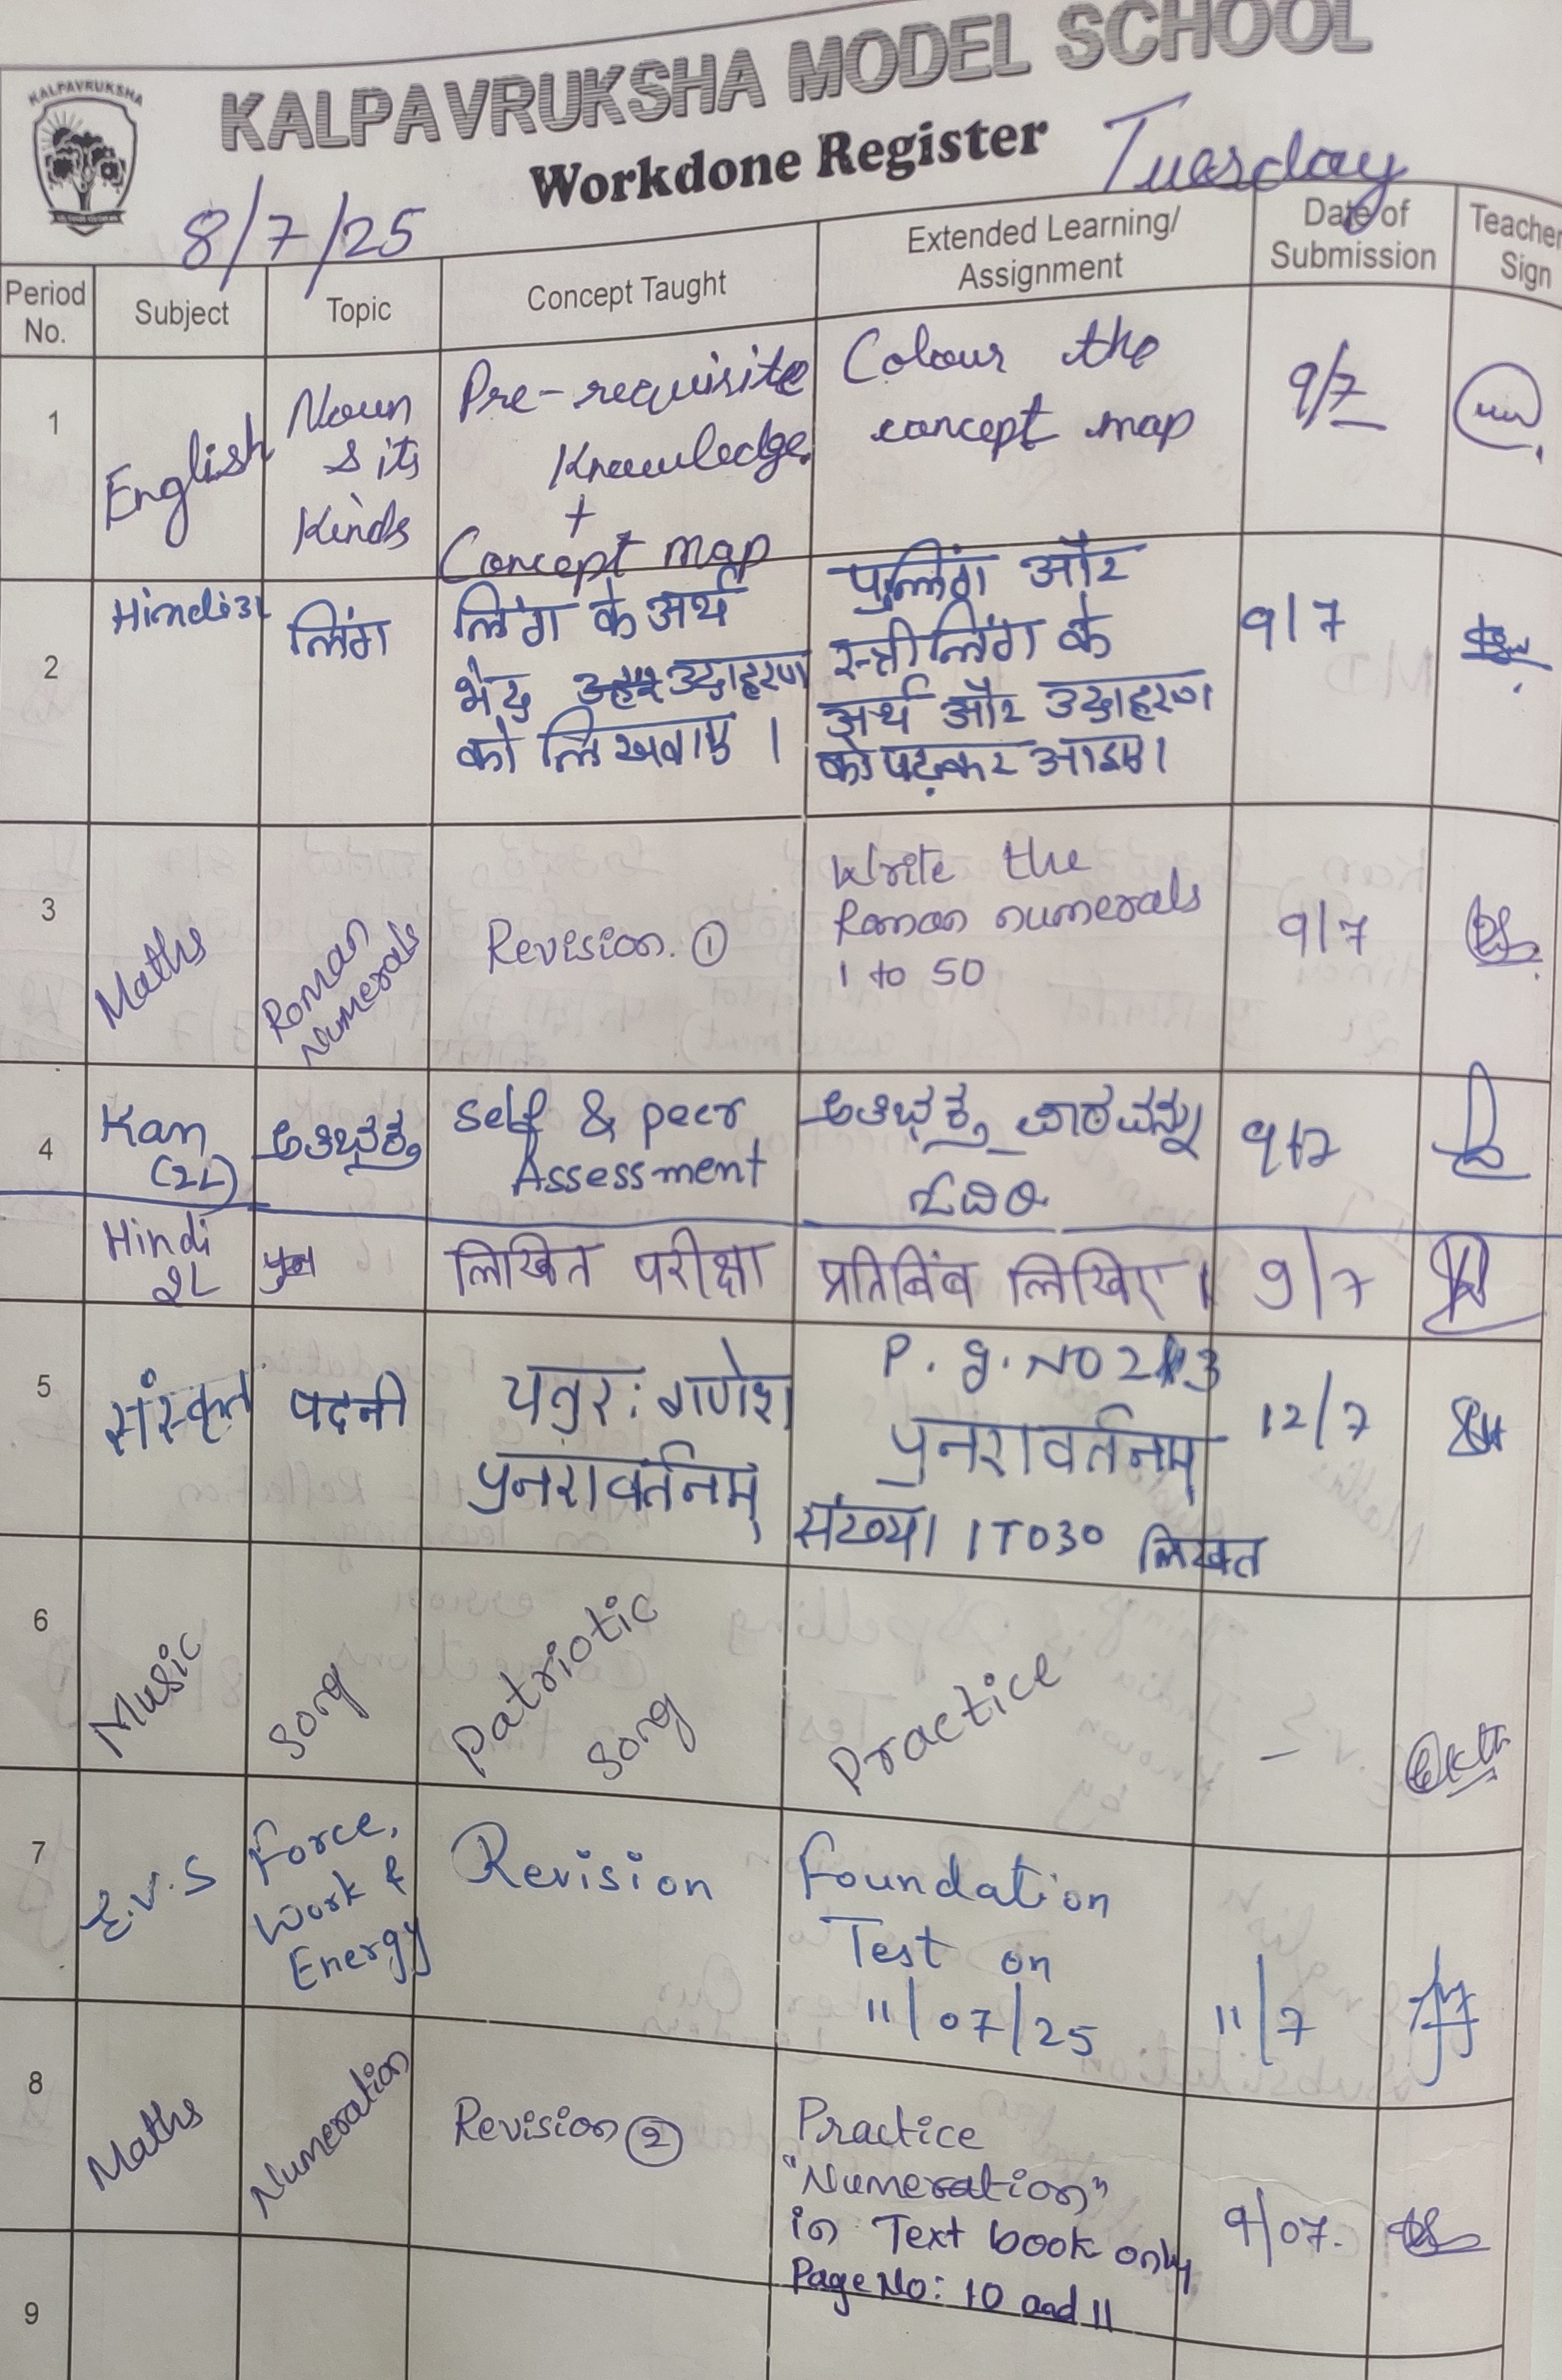 KALPAVRUKSHA MODEL SCHOOL
KALPAVRUKSHA
Workdone Register
Tuesday
8/7/25
Period No.
Subject
Topic
Concept Taught
Extended Learning/
Assignment
Date of
Submission
Teacher
Sign
1
English
Noun
& its
Kinds
Pre-requisite
Knowledge
+
Concept map
Colour the
concept map
9/7
2
Hindi 3L
लिंग
लिंग के अर्थ
भेद उदाहरण
को लिखवाए ।
पुल्लिंग और
स्त्रीलिंग के
अर्थ और उदाहरण
को पढ़कर आइए।
9/7
3
Maths
Roman
Numerals
Revision. ①
Write the
Roman numerals
1 to 50
9/7
4
Kan
(2L)
Self & peer
Assessment
ಪಾಠವನ್ನು
ಓದಿರಿ
9/7
Hindi
2L
लिखित परीक्षा
प्रतिबिंब लिखिए ।
9/7
5
संस्कृत
चतुर: गणेश
पुनरावर्तनम्
P. g. NO
पुनरावर्तनम्
संख्या 1TO30 लिखत
12/7
6
Music
Song
Patriotic
Song
Practice
–
7
E.V.S
Force,
Work &
Energy
Revision
Foundation
Test on
11/07/25
11/7
8
Maths
Numeration
Revision ②
Practice
"Numeration"
in Text book only
Page No: 10 and 11
9/07.
9